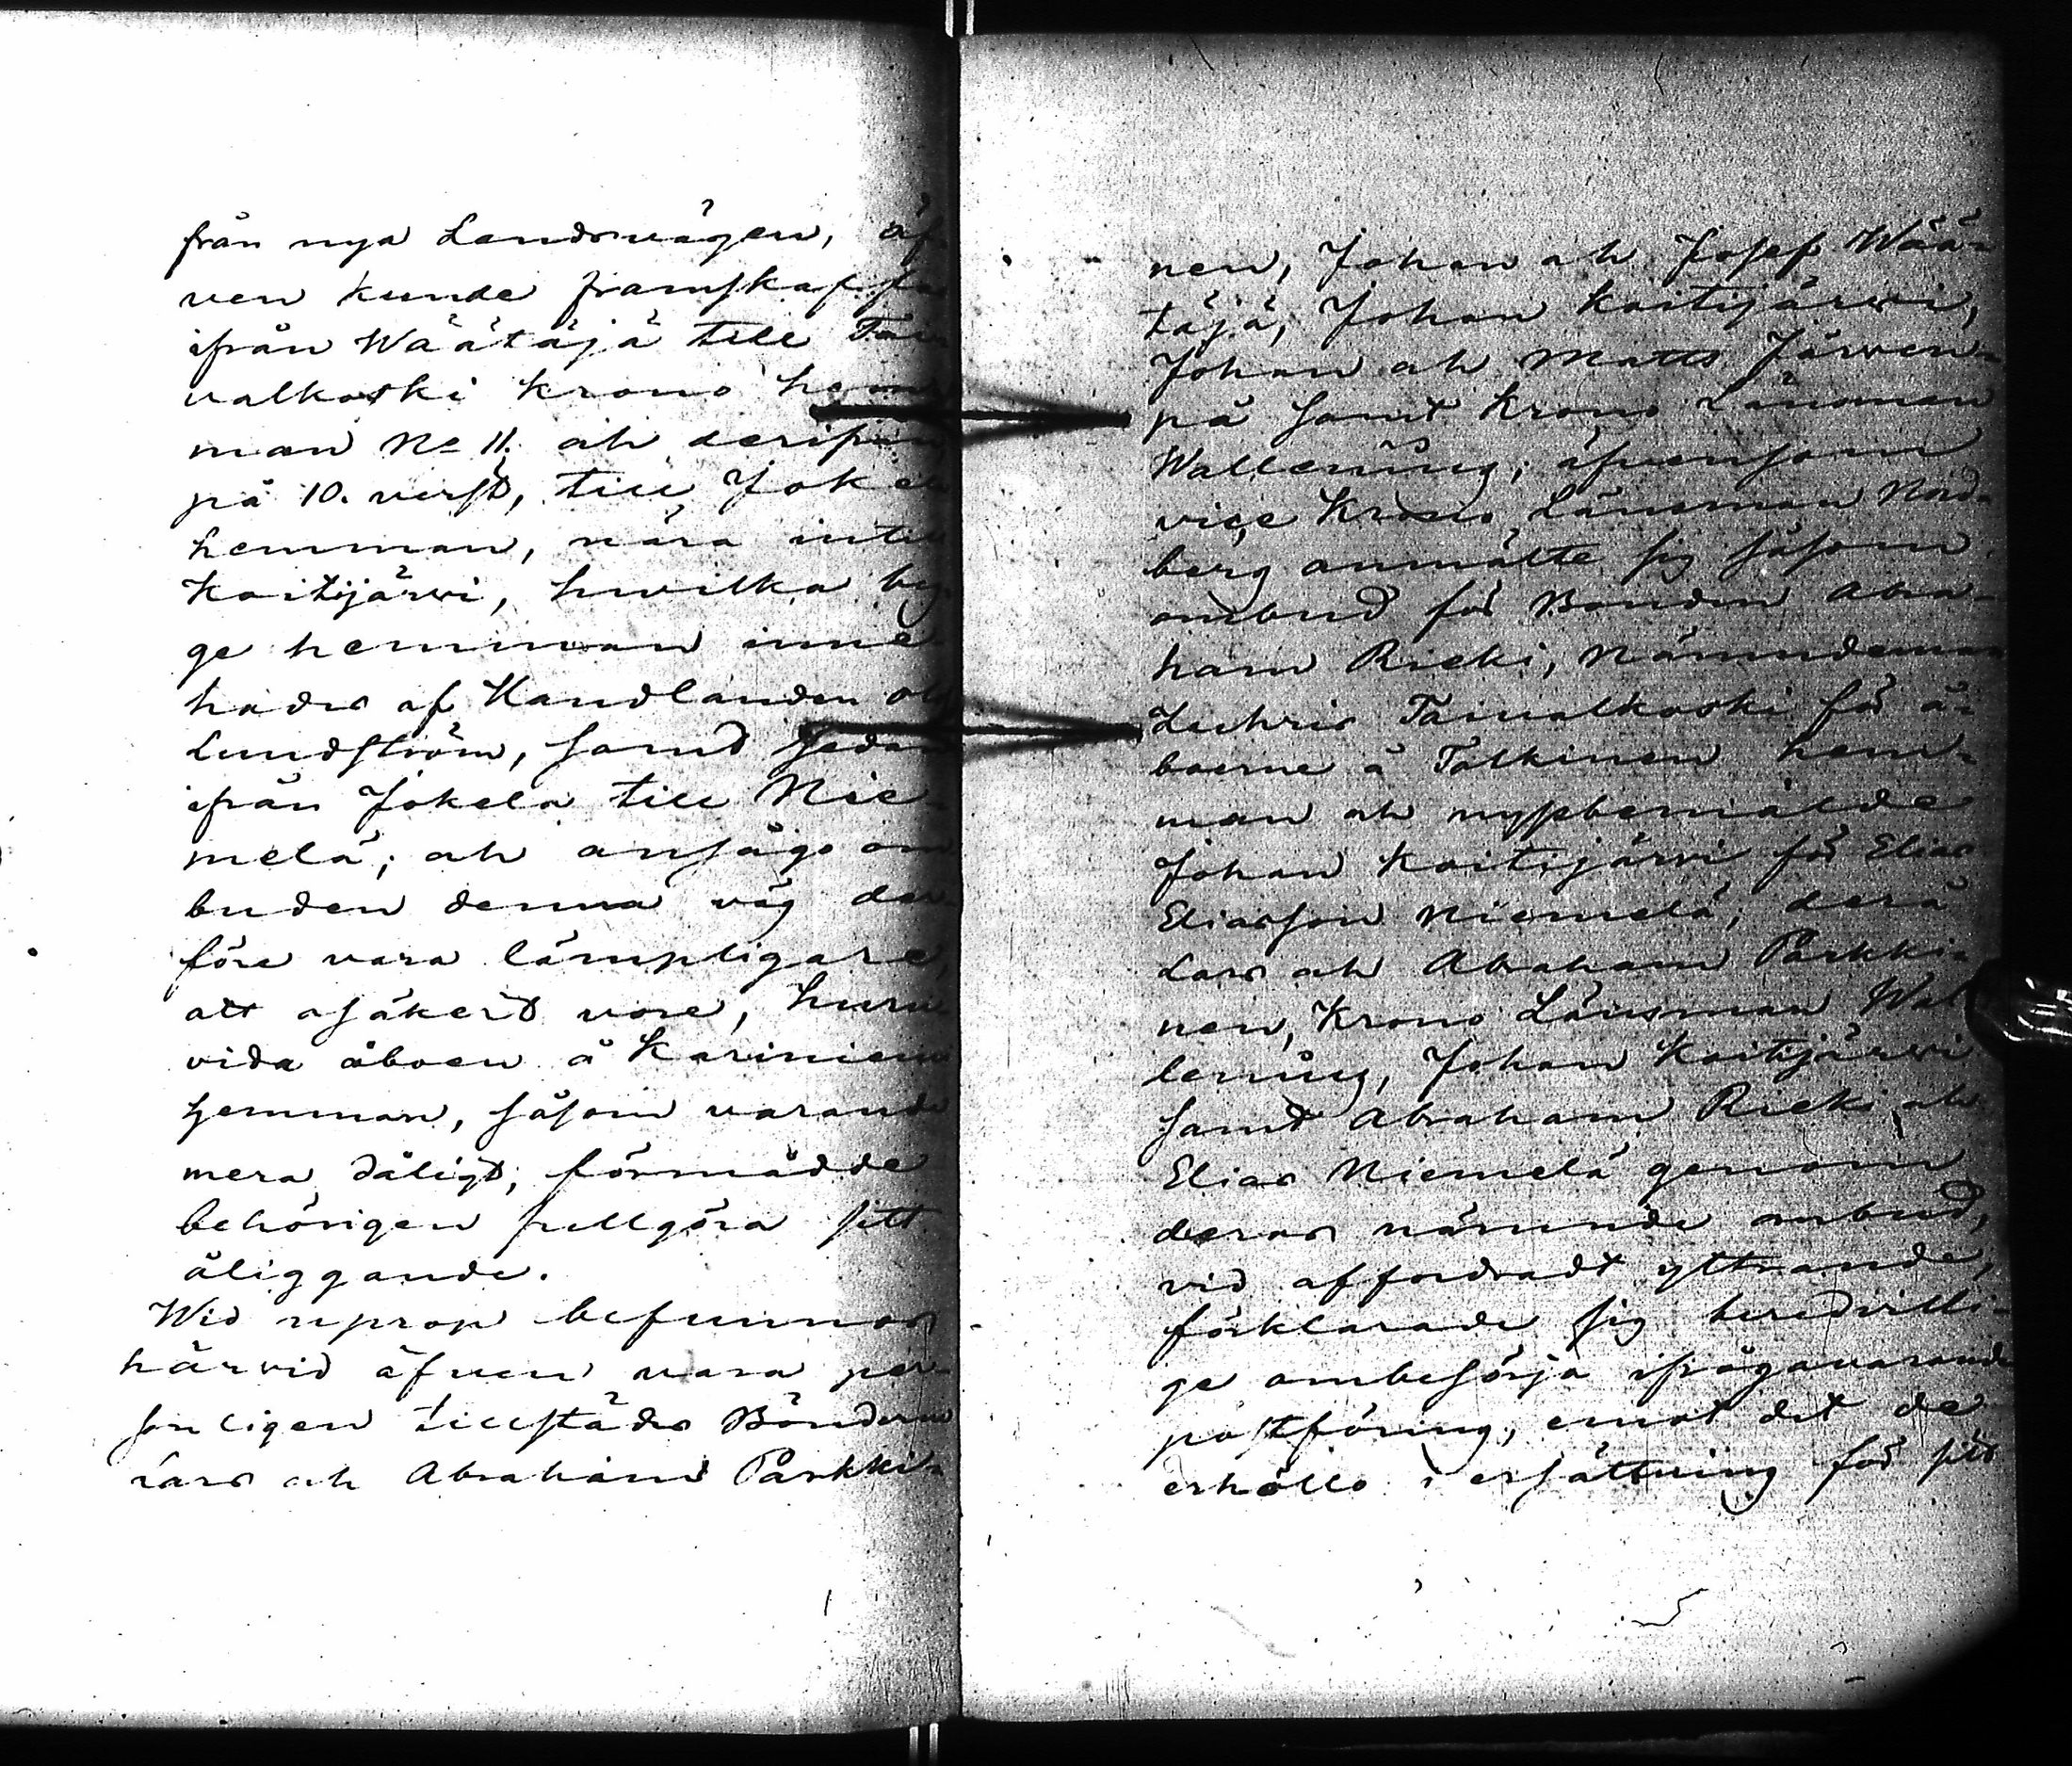 från nya Landsvägen, äf-
ven kunde framskaffa
ifrån Wäätäjä till Tai-
valkoski krono hem-
man No 11. och derifrån
på 10. verst, till Jokela
hemman, nära intill
Koitijärvi, hvilka byg-
ge hemman inne-
hades af Handlanden
Lundström, samt sedan
ifrån Jokela till Nie-
melä; och ansågo om-
buden denna väg der-
före vara lämpligare,
att osäkert vore, huru-
vida åboen å Kariniemi
hemman, såsom varande
mera dåligt, förmådde
behörigen fullgöra sitt
åliggande.
Wid uprop befunnos
härvid äfven vara per-
sonligen tillstädes Bönderne
Lars och Abraham Parkki-
nen, Johan och Josef Wää-
täjä, Johan Koitijärvi,
Johan och Matts Järven-
pä samt Krono Länsman
Walleniug; äfvensom
vice Krono Länsman Nord-
berg anmälte sig såsom
ombud för Bonden Abra-
ham Rieki, Nämndeman
Zachris Taivalkoski för å-
boerne å Talkinen hem-
man och nyssbemälde
Johan Koitijärvi för Elias
Eliasson Niemelä; derå
Lars och Abraham Parkki-
nen, Krono Länsman Wal-
leniug, Johan Koitijärvi
samt Abraham Rieki och
Elias Niemelä genom
deras nämnde ombud,
vid affordradt yttrande,
förklarade sig beredvilli-
ge ombesörja ifrågavarande
postföring, emot det de
erhöllo i ersättning för sitt